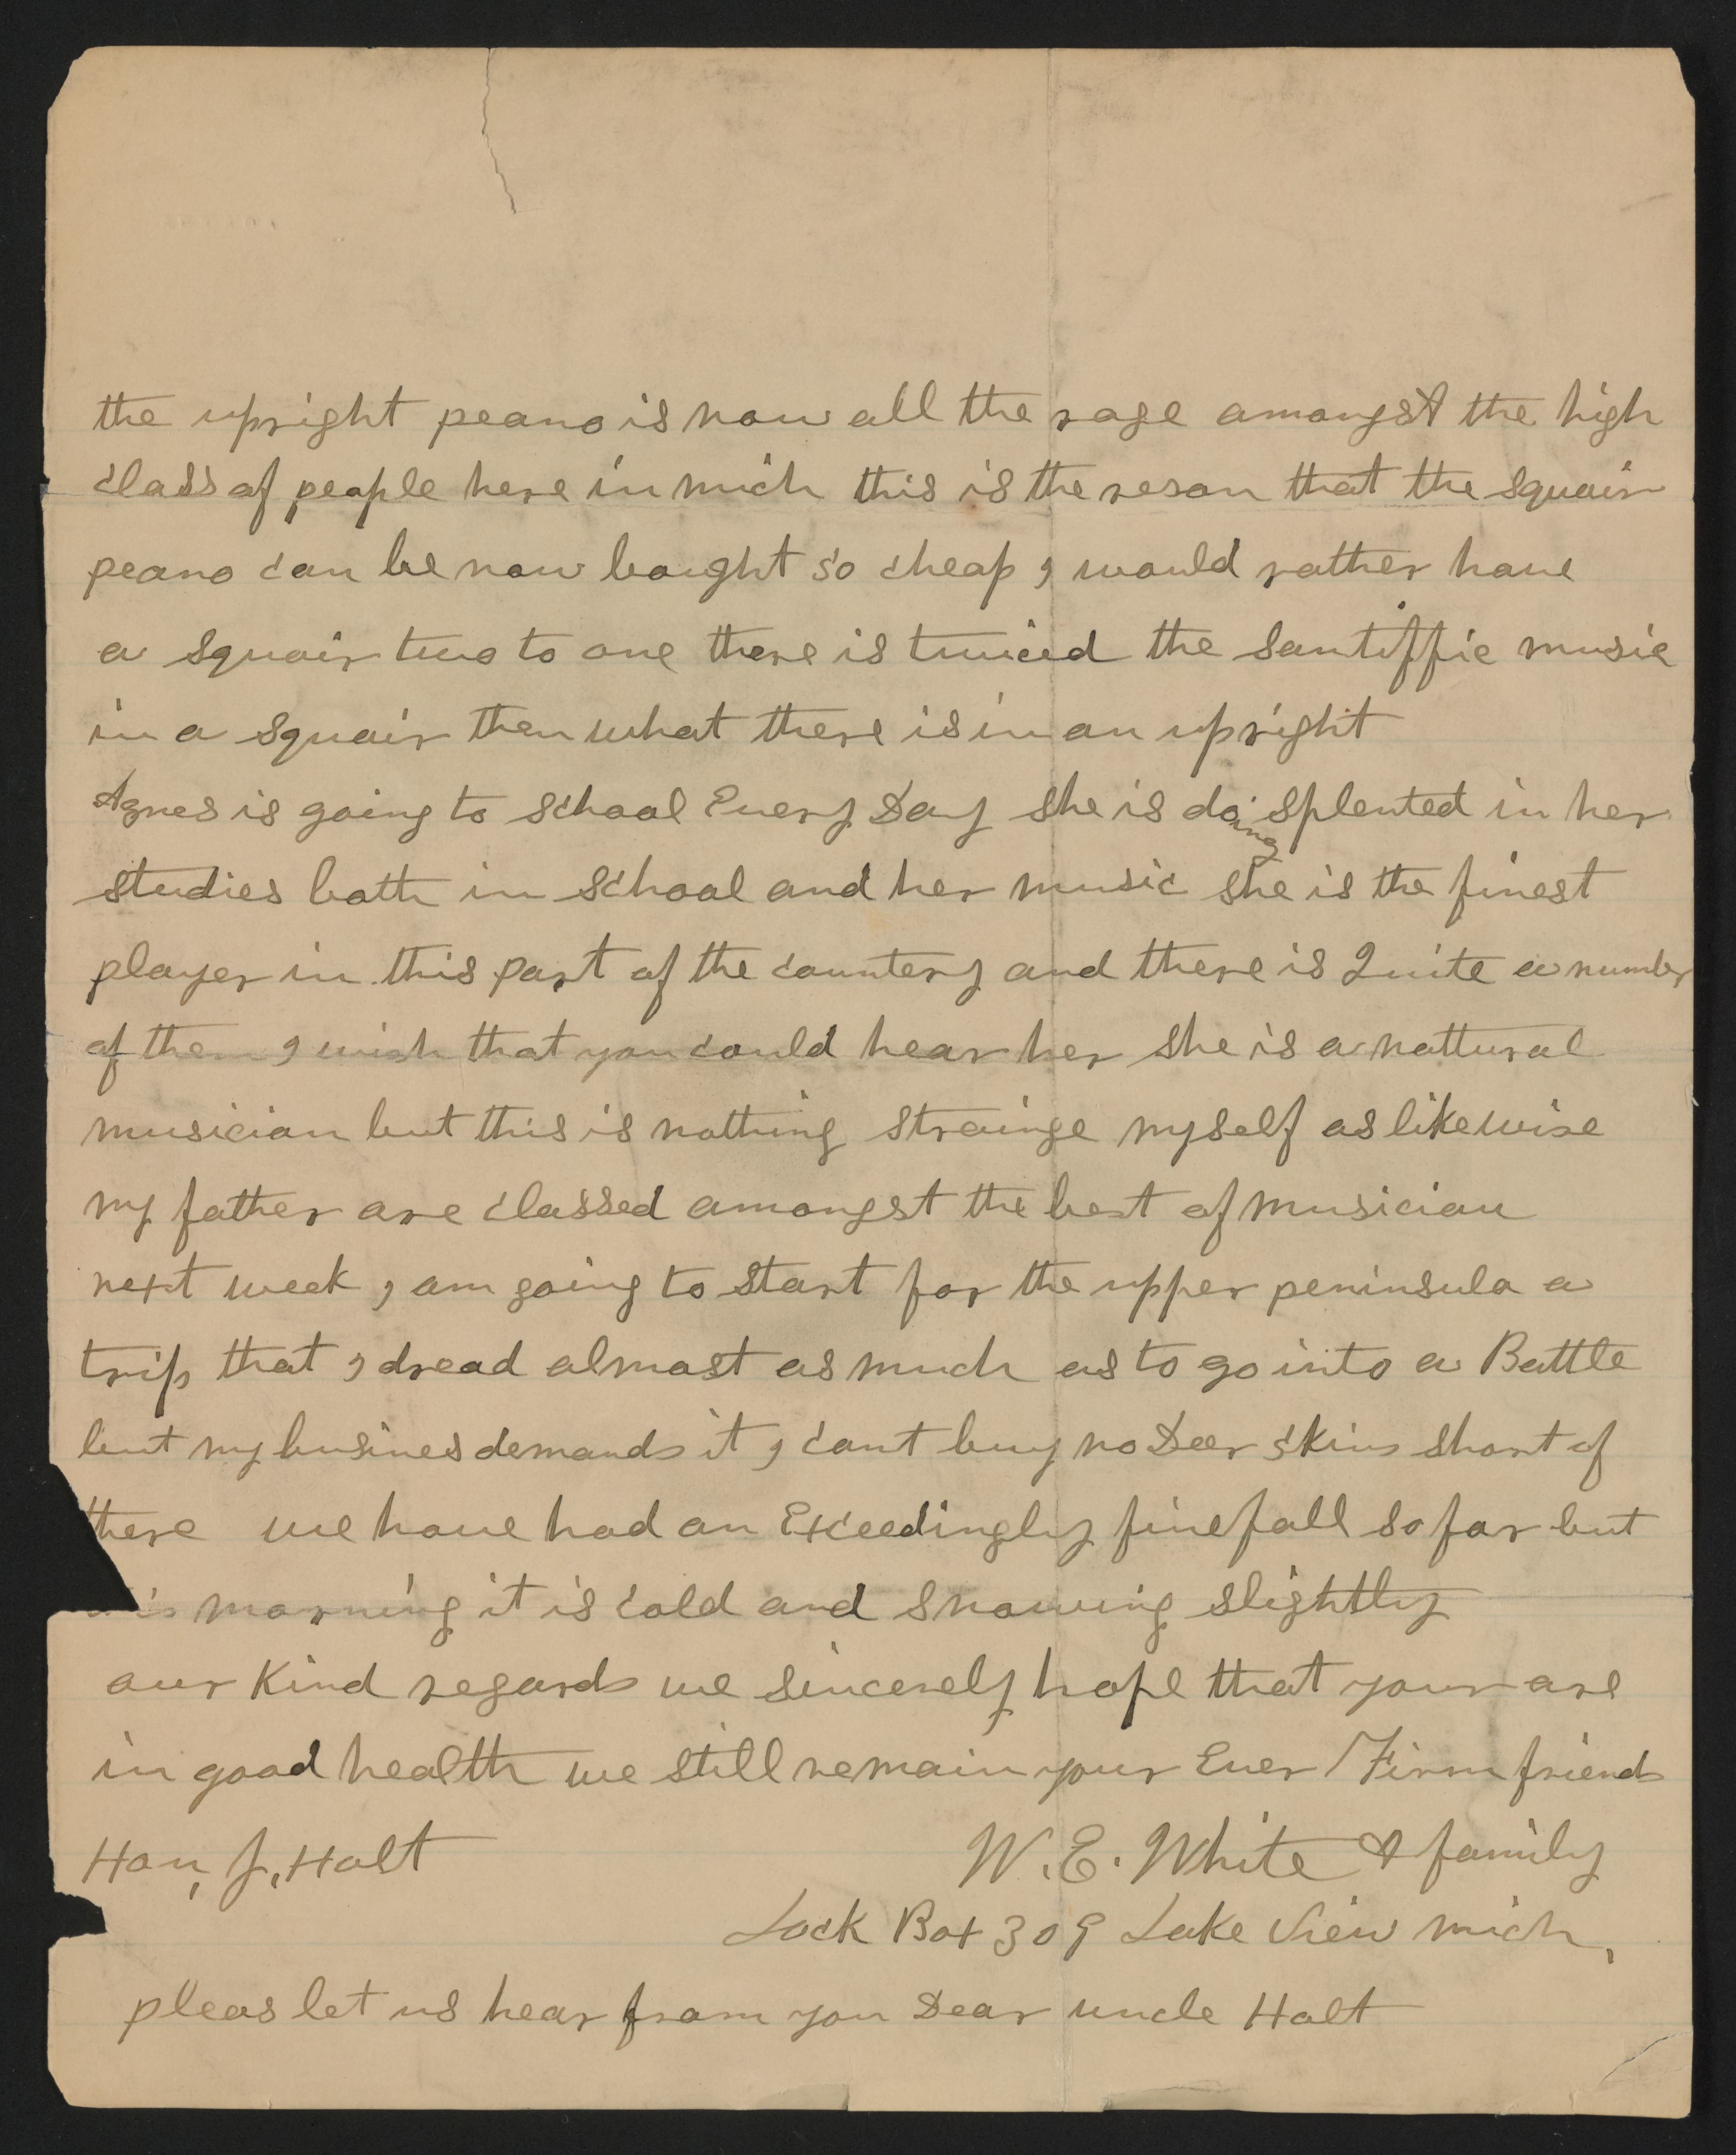 the upright peano is now all the rage amongst the high
class of people here in mich this is the reson that the squair
peano can be now bought so cheap I would rather have
a squair two to one there is twiced the santiffic music
in a squair then what there is in an upright
Agnes is going to school Every Day she is doing splented in her
studies both in school and her music she is the finest
player in this part of the countery and there is Quite a number
of them I wish that you could hear her she is a nattural
musician but this is nothing strainge myself as likewise
my father are classed amongst the best of musician
next week I am going to start for the upper peninsula a
trip that I dread almost as much as to go into a Battle
but my busines demands it I cant buy no Deer skins short of
there we have had an Exceedingly fine fall so far but
is morning it is cold and snowing slightly
our Kind regards we sincerely hope that your are
in good health we still remain your Ever Firm friends
Hon, J, Holt
W. E. White & family
Lock Box 309 Lake View mich,
pleas let us hear from you Dear uncle Holt